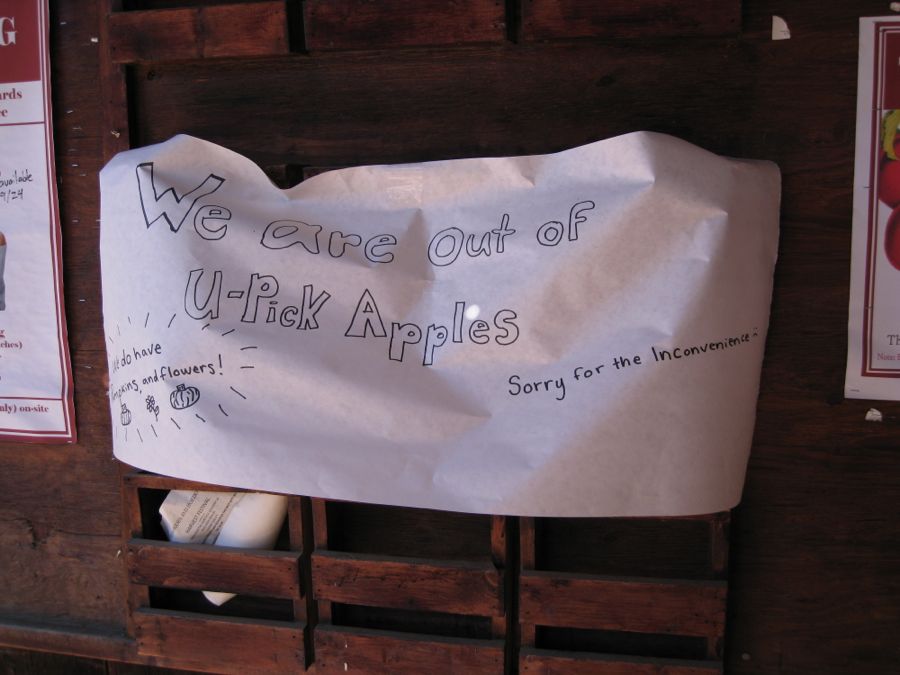 We are out of
U-Pick Apples
do have
and flowers!
Sorry for the Inconvenience
G
ards
available
9/24
nly) on-site
HARVEST FESTIVAL